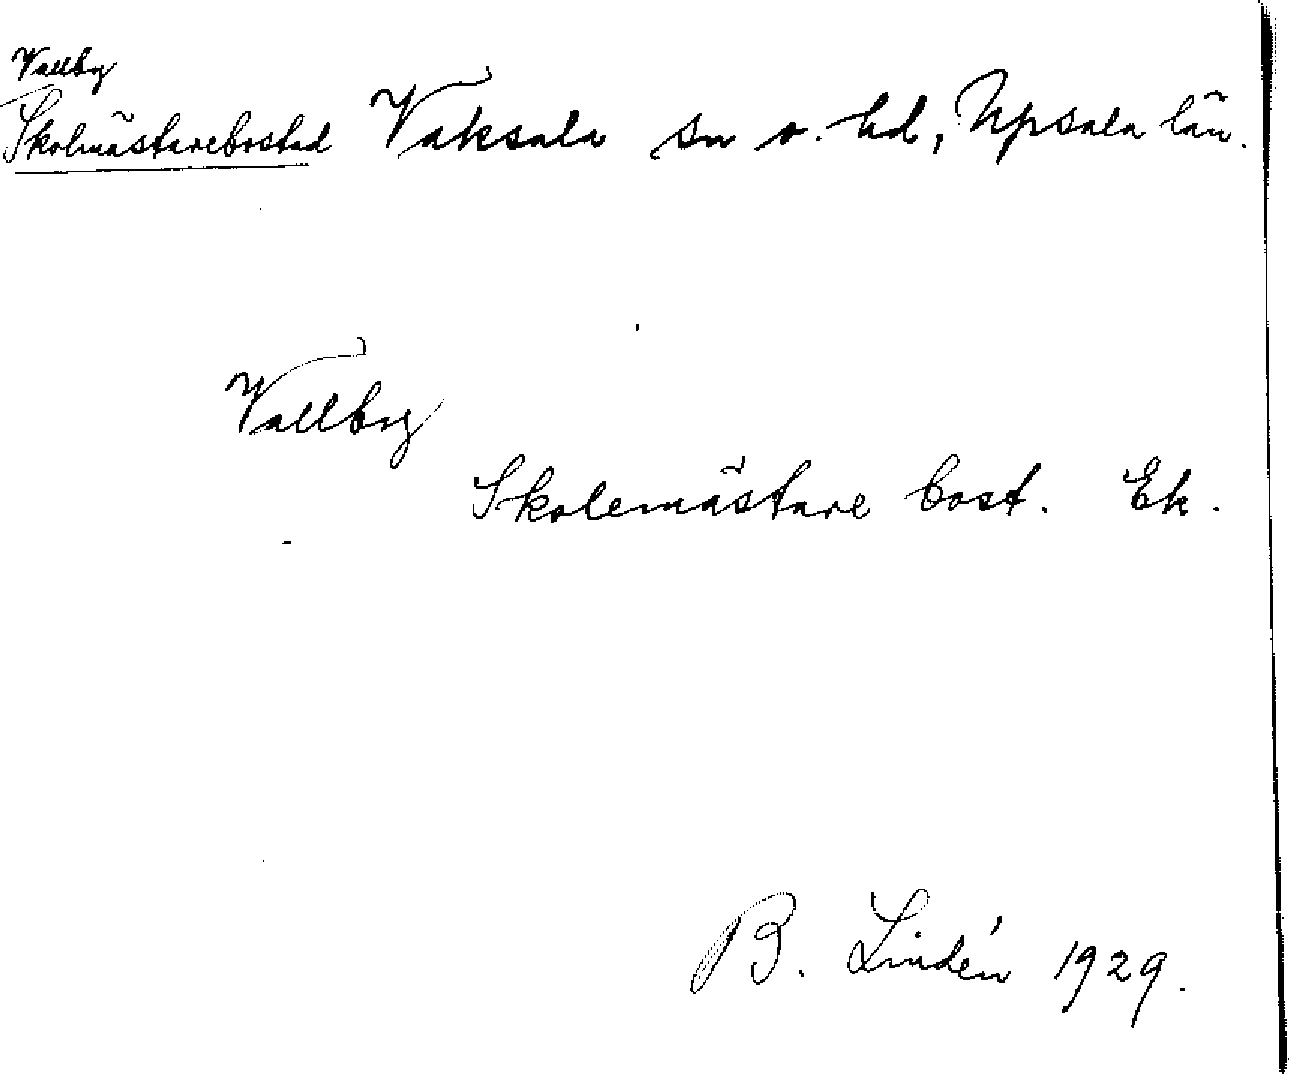 Vallby
Skolmästarebostad Vaksala sn o. hd, Upsala län.
Vallby
Skolemästare bost. Ek.
B. Lindén 1929.